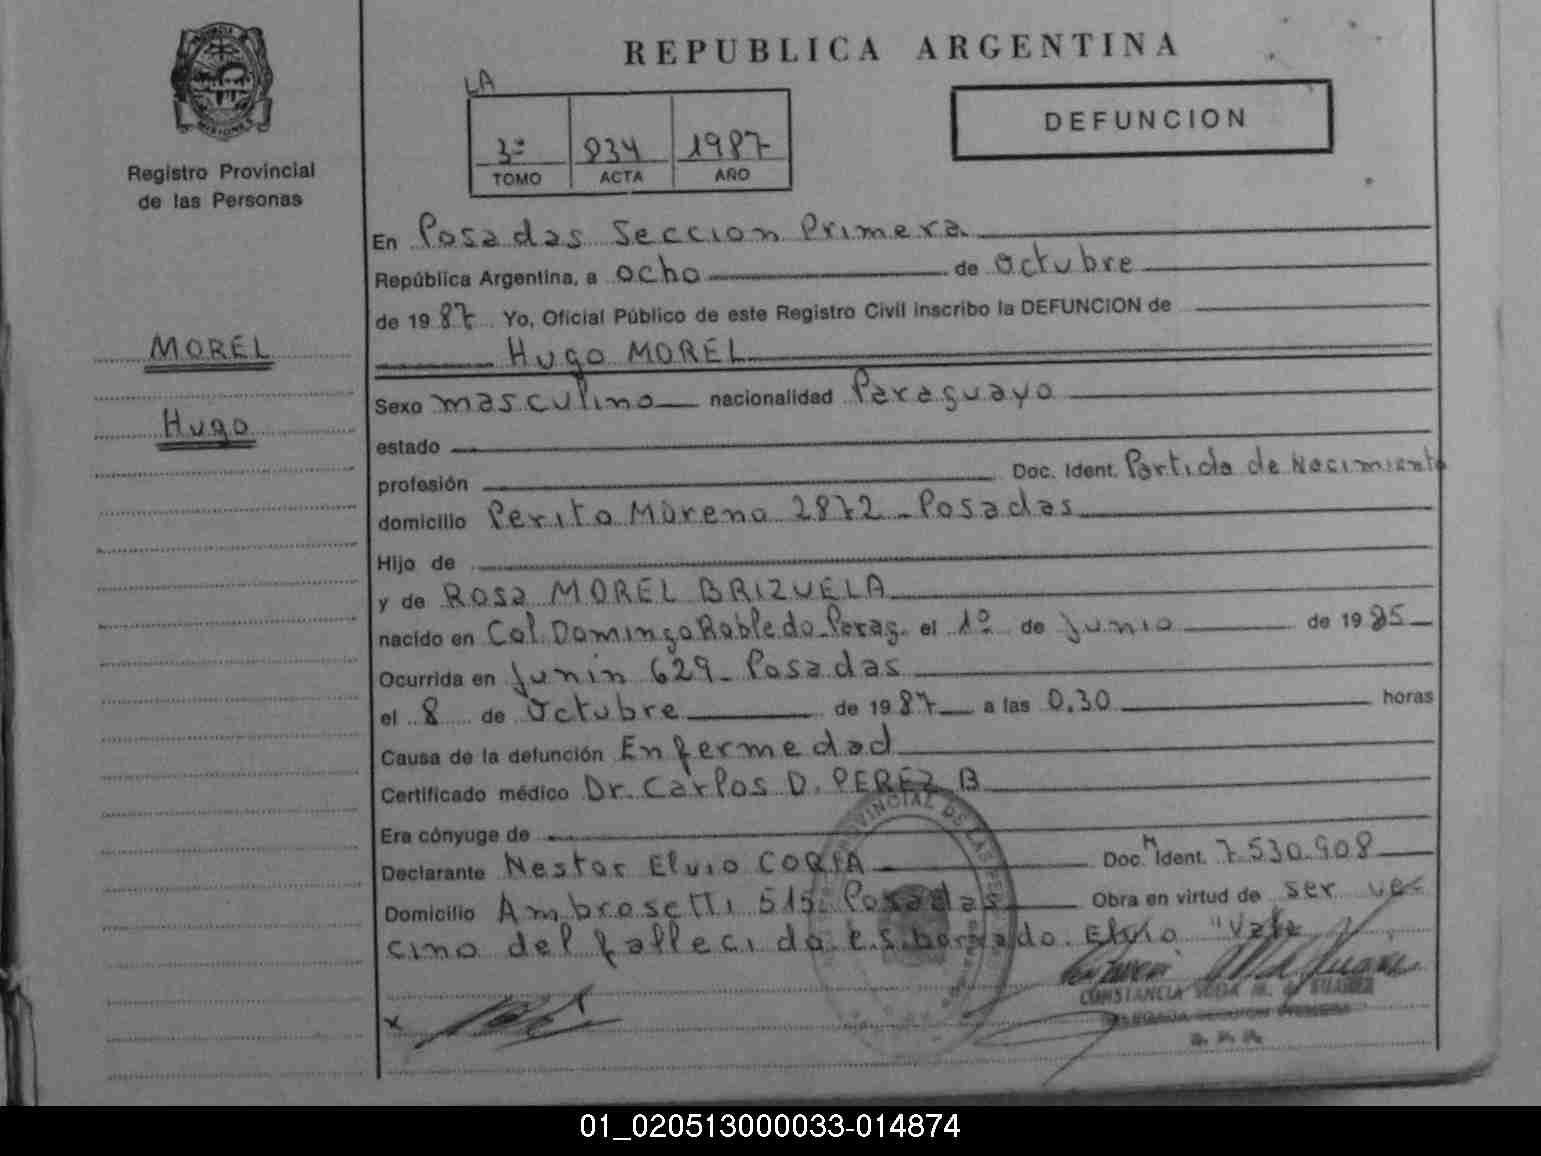 REPUBLICA ARGENTINA
LA
3º 834 1987
TOMO ACTA AÑO
DEFUNCION
MISIONES
Registro Provincial
de las Personas
MOREL
Hugo
En Posadas Seccion Primera
República Argentina, a ocho de octubre
de 1987 Yo, Oficial Público de este Registro Civil inscribo la DEFUNCION de
Hugo MOREL
Sexo masculino nacionalidad Paraguayo
estado
profesión Doc. Ident. Partida de Nacimiento
domicilio Perito Moreno 2872 - Posadas
Hijo de
y de Rosa MOREL BRIZUELA
nacido en Col. Domingo Robledo - Parag. el 1º de Junio de 1985
Ocurrida en Junin 629 - Posadas
el 8 de Octubre de 1987 a las 0,30 horas
Causa de la defunción Enfermedad
Certificado médico Dr. Carlos D. PEREZ B
Era cónyuge de
Declarante Nestor Elvio CORIA Doc. M Ident. 7.530.908
Domicilio Ambrosetti 515 - Posadas Obra en virtud de ser ve
cino del fallecido E.S. borrado. Elvio "Vale
PROVINCIAL DE LAS PER
CONSTANCIA M. de SUAREZ
SECCION PRIMERA
01_020513000033-014874